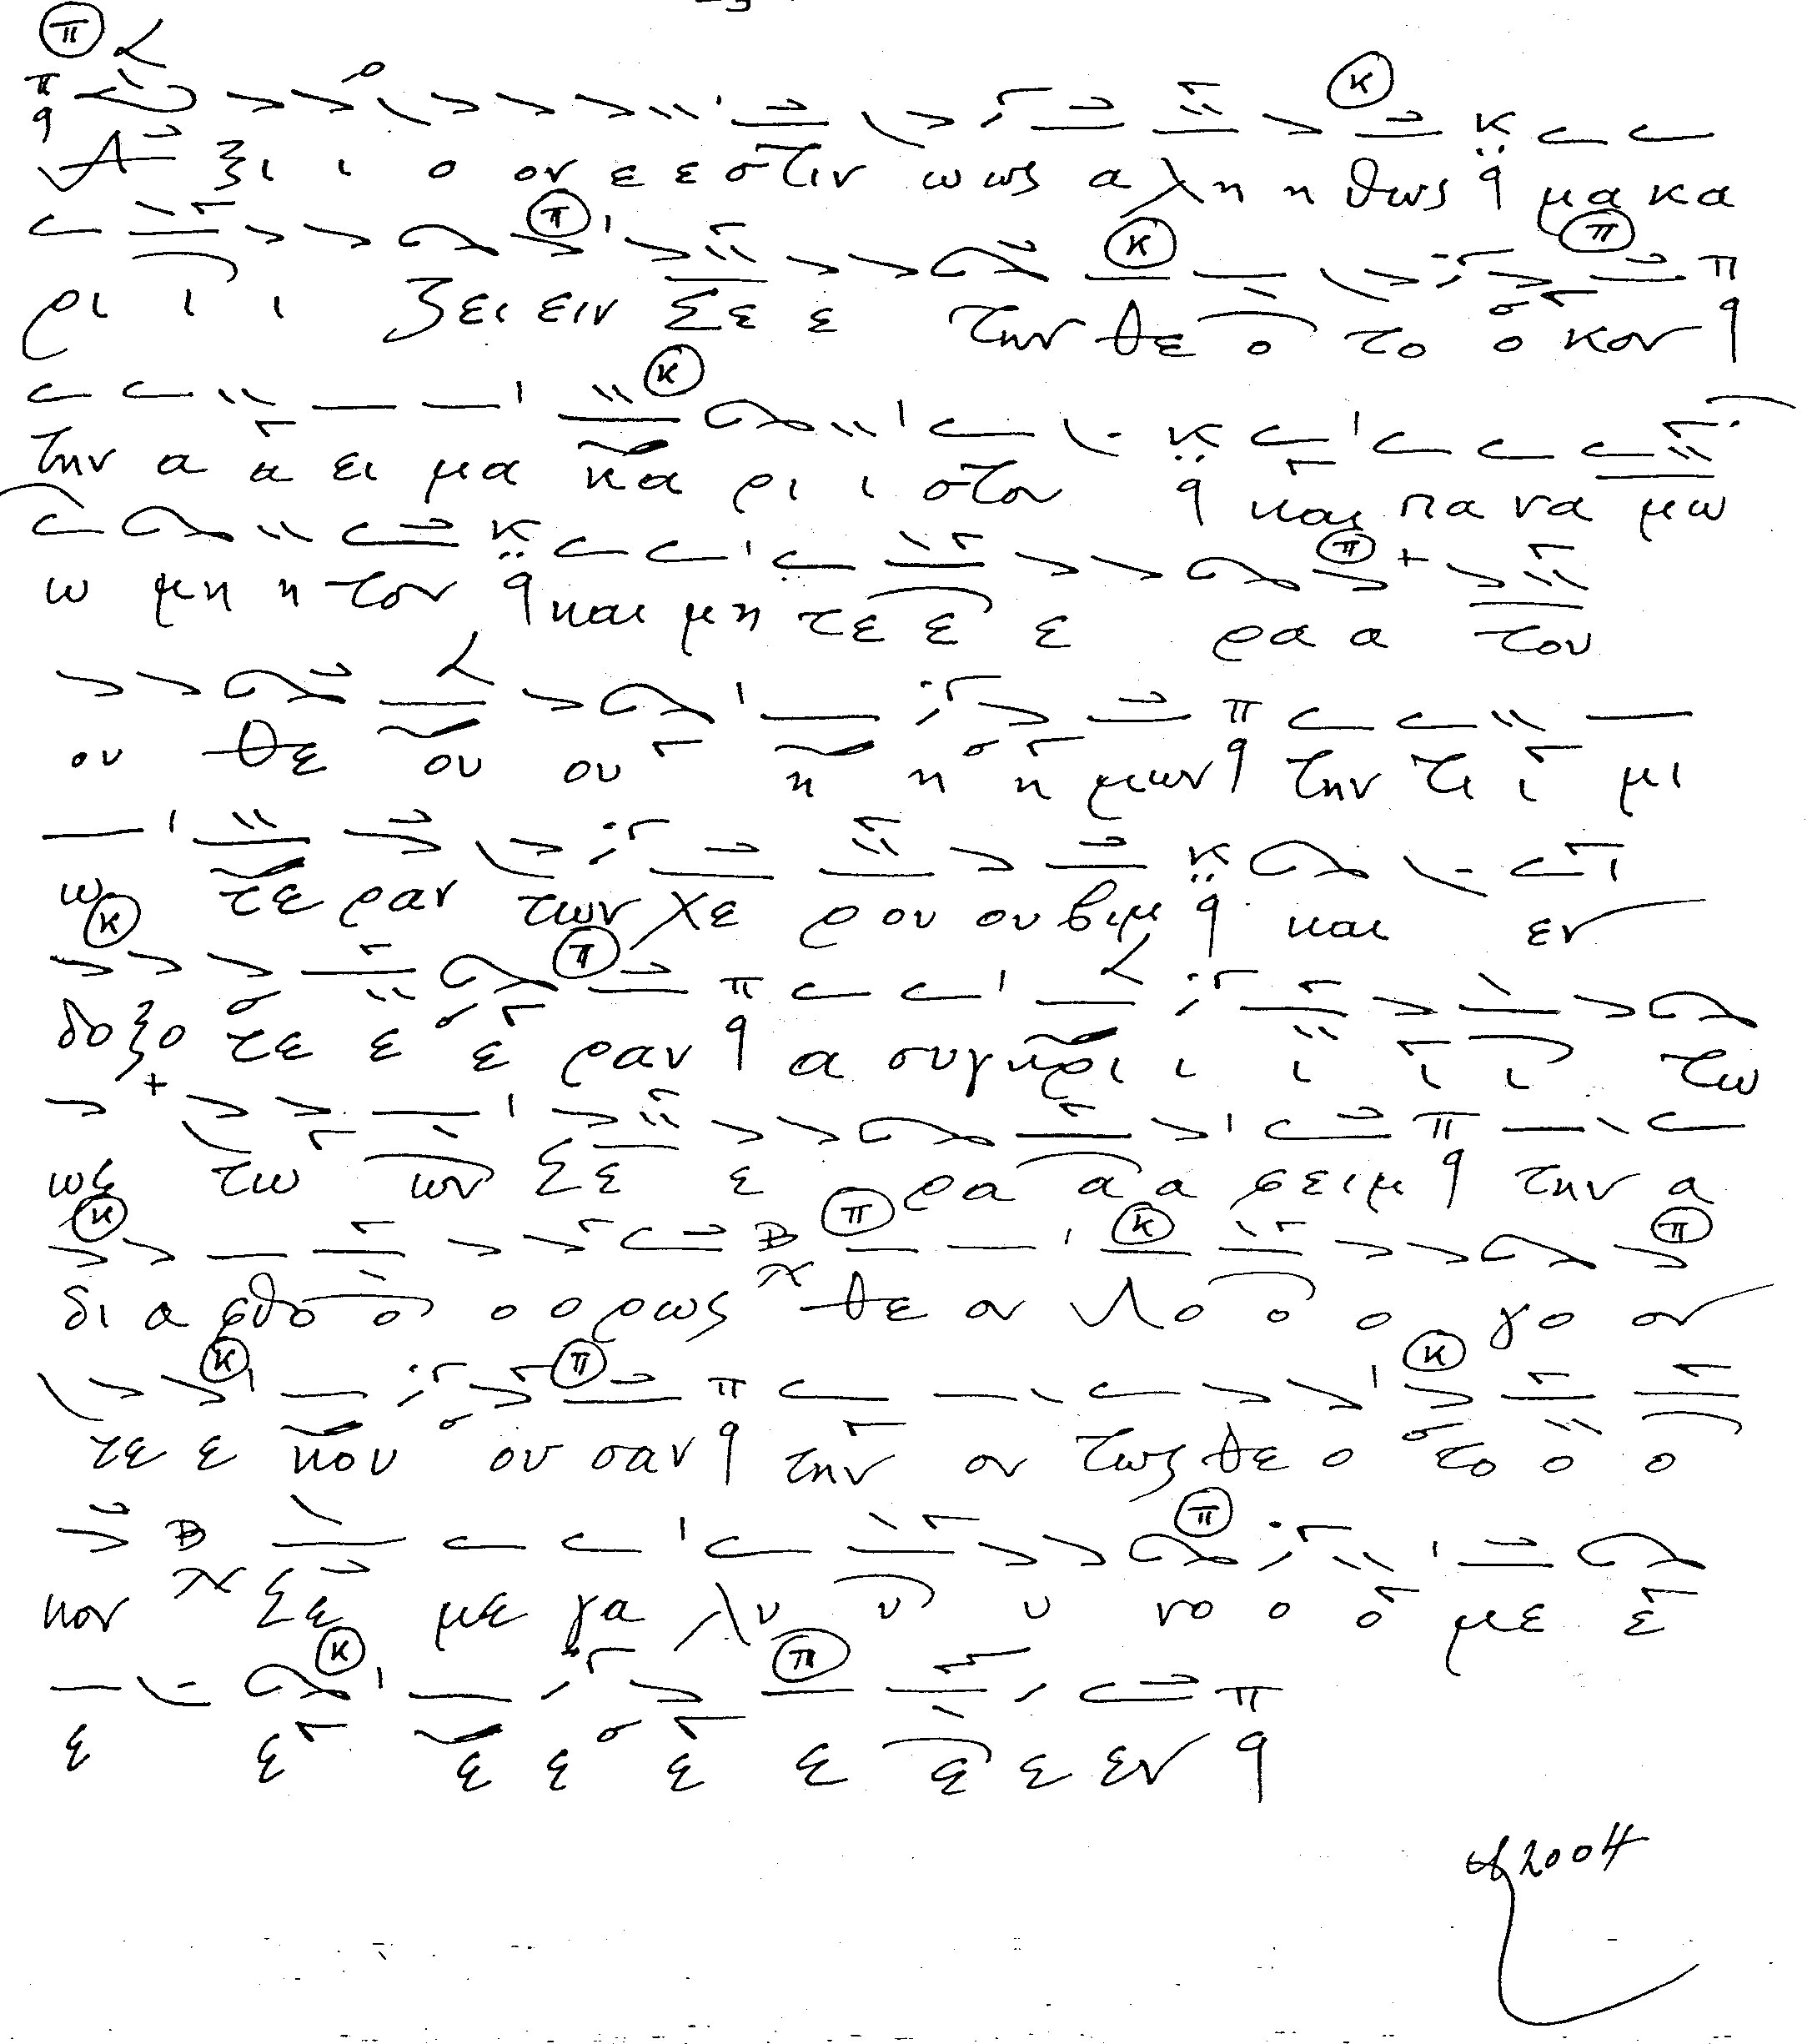 Α ξι ι ο ον ε ε στιν ω ως α λη η θως μα κα
ρι ι ι ζει ειν Σε ε την θε ο το ο κον
την α α ει μα κα ρι ι στον και πα να μω
ω μη η τον και μη τε ε ε ρα α του
ου θε ου ου η η η μων την τι ι μι
ω τε ραν των χε ρου ου βιμ και εν
δο ξο τε ε ε ραν α συγκρι ι ι ι ι τω
ως τω ων Σε ε ρα α α φειμ την α
δι α φθο ο ο ο ρως θε ον Λο ο ο γο ον
τε ε κου ου σαν την ον τως θε ο το ο ο
κον Σε με γα λυ υ υ νο ο ο με ε
ε ε ε ε ε ε ε ε εν
2004